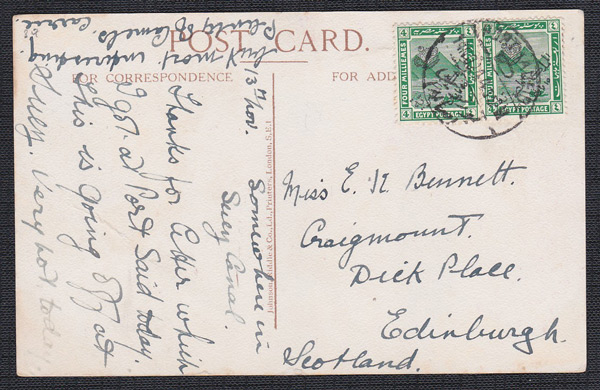 POST CARD.
FOR CORRESPONDENCE
FOR ADD
13th Nov.
Somewhere in
Suez Canal.
Thanks for letter which
I got at Port Said today.
This is going off at
Suez. Very hot today,
but most interesting
Plenty of Camels.
Carrie
Miss E. K. Bennett.
Craigmount.
Dick Place.
Edinburgh.
Scotland.
Johnson, Riddle & Co., Ltd., Printers, London, S.E.1
FOUR MILLIEMES
EGYPT POSTAGE
4
4
FOUR MILLIEMES
EGYPT POSTAGE
4
4